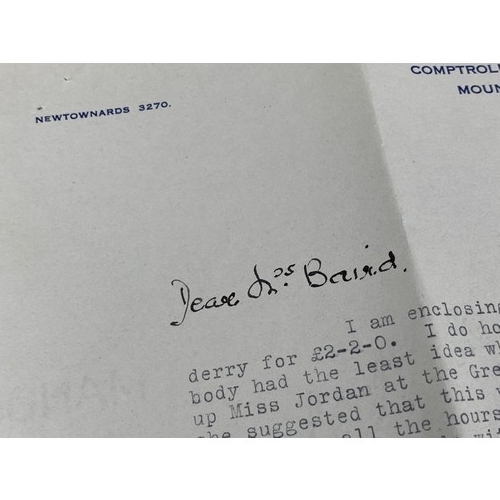 COMPTROLL
NEWTOWNARDS 3270.
MOUN
Dear Mrs. Baird.
I am enclosing
derry for £2-2-0. I do ho
body had the least idea wh
up Miss Jordan at the Gre
she suggested that this w
all the hours
wit